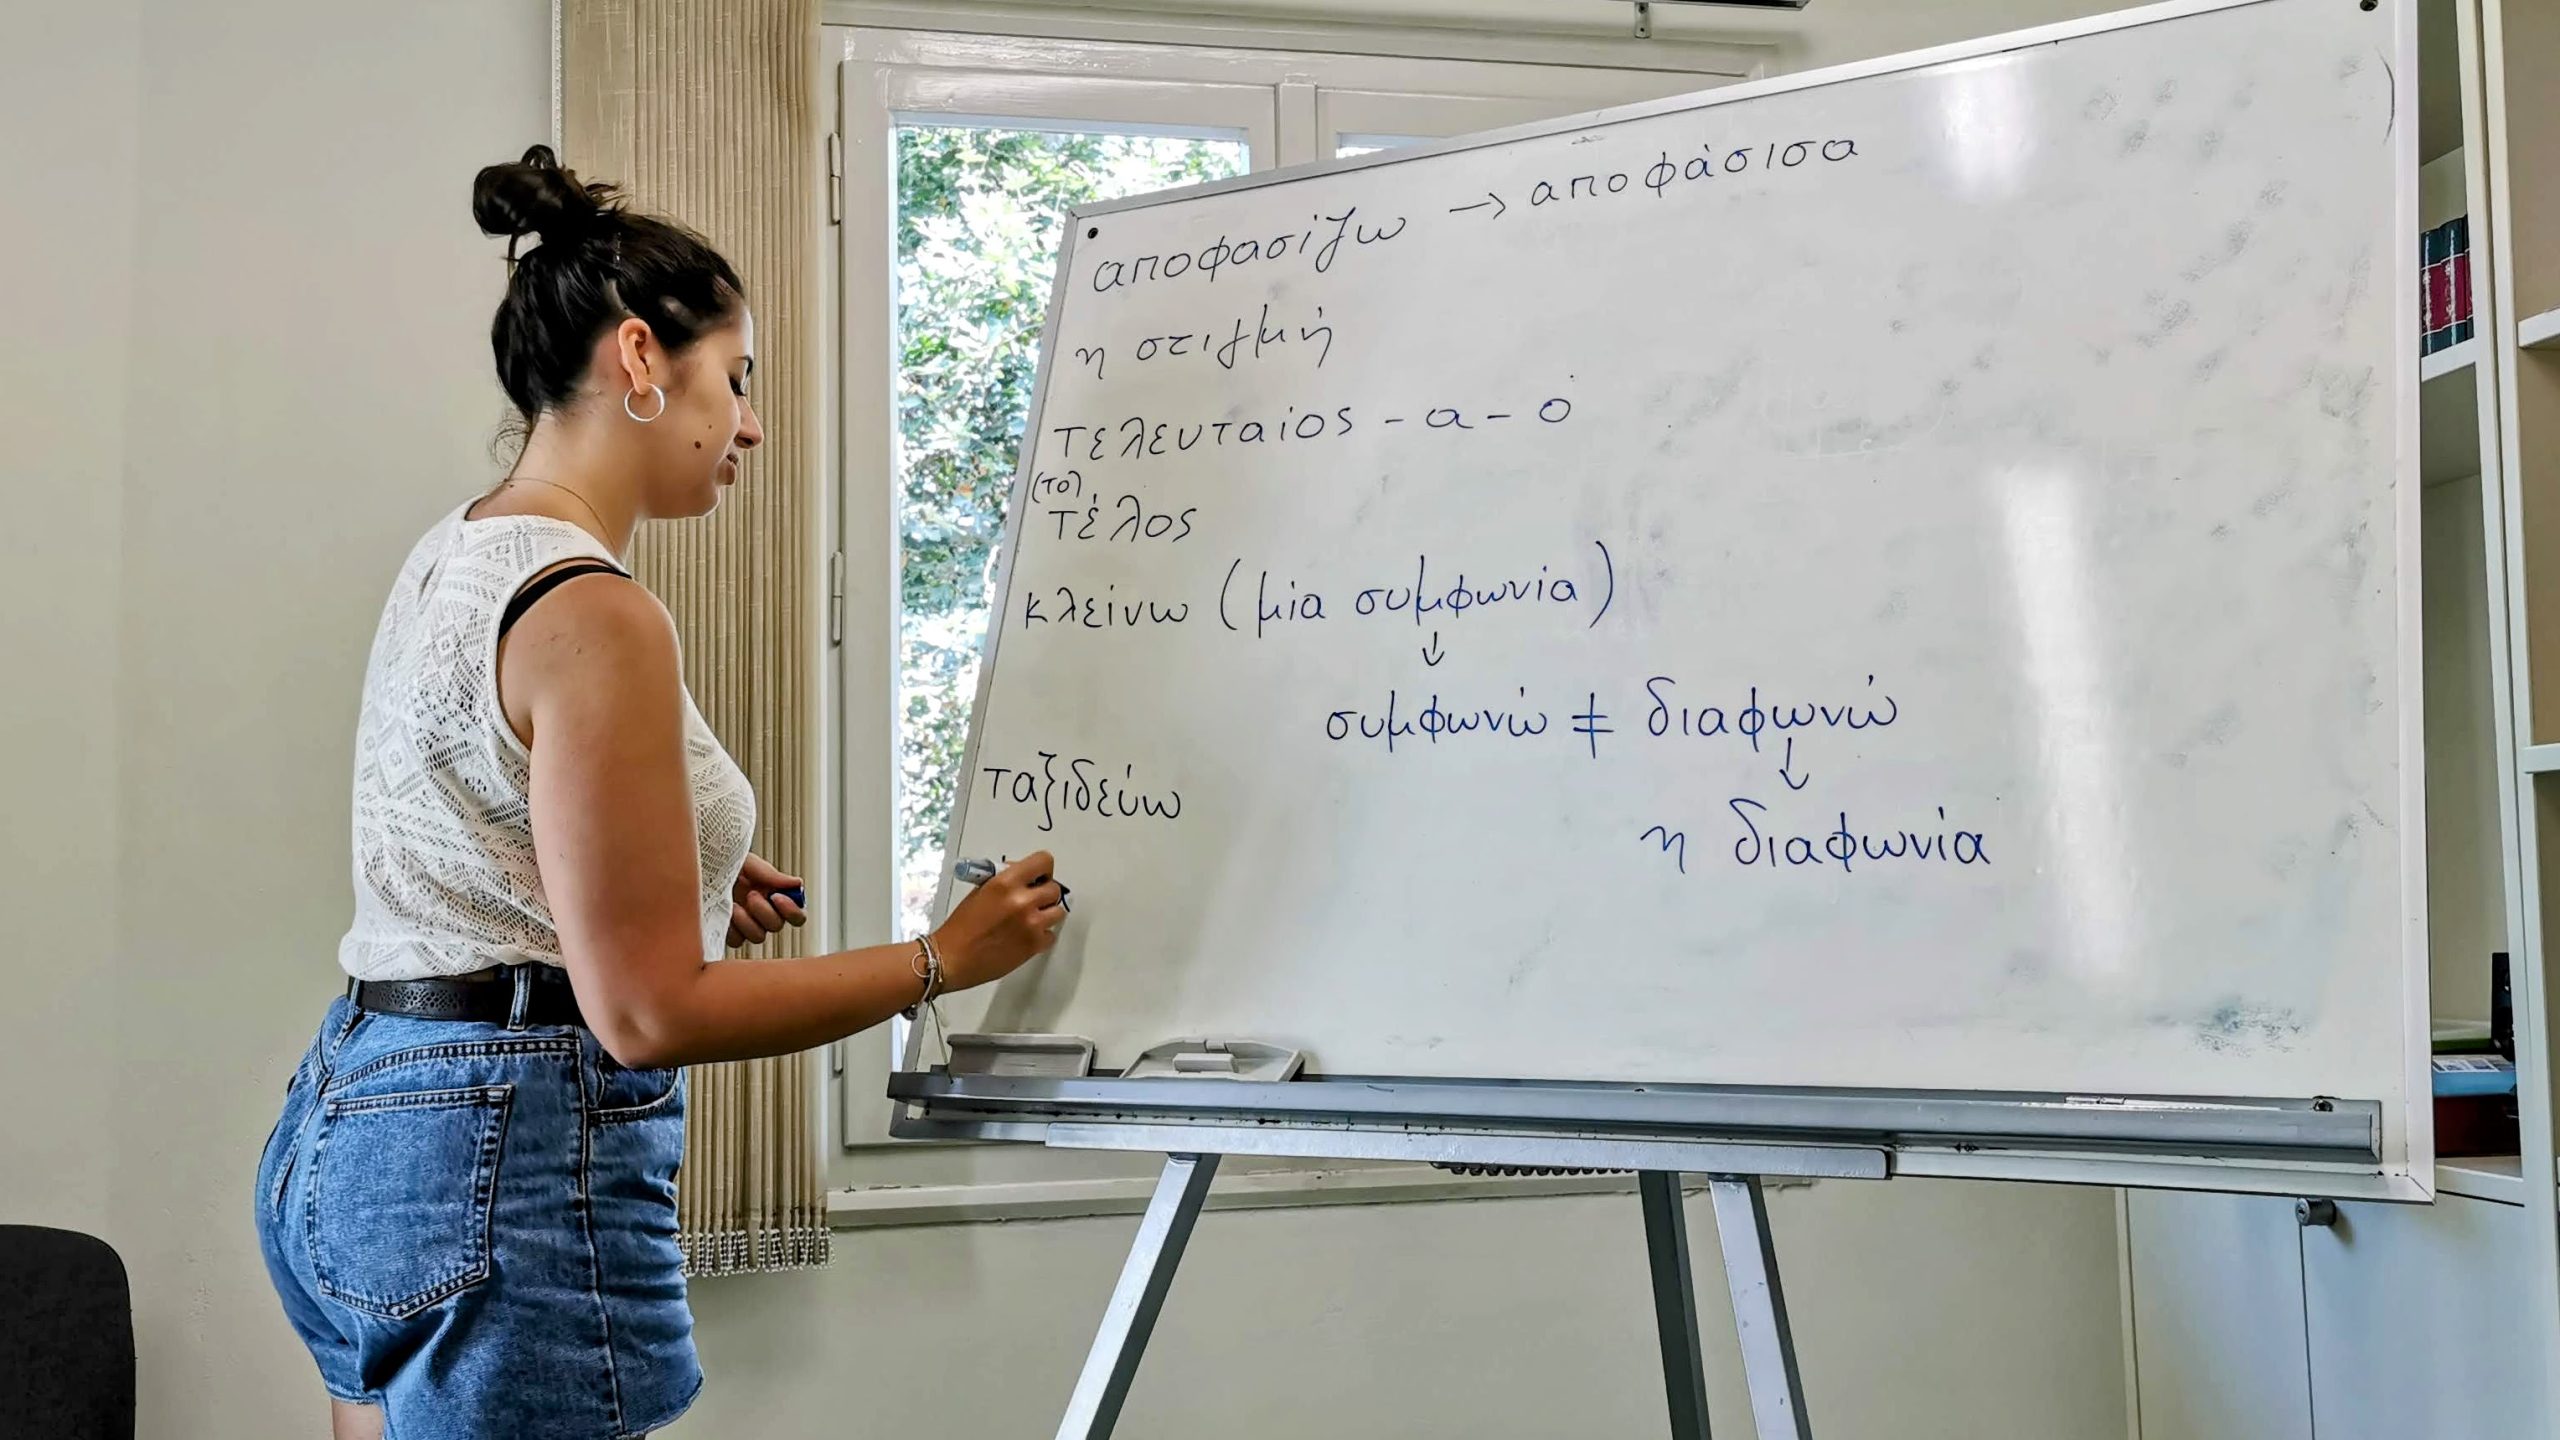 αποφασίζω → αποφάσισα
η στιγμή
τελευταίος - α - ο
(το)
τέλος
κλείνω (μία συμφωνία)
↓
συμφωνώ ≠ διαφωνώ
↓
ταξιδεύω
η διαφωνία